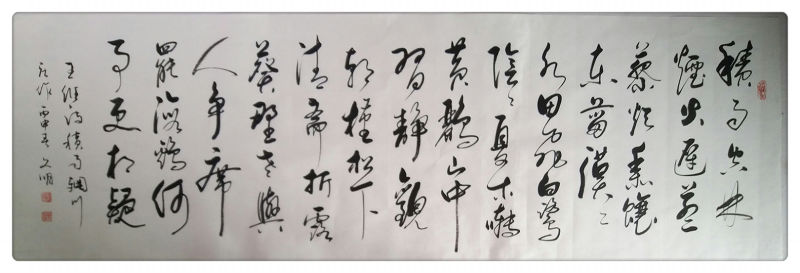 積雨空林
煙火遲蒸
藜炊黍饟
東菑漠〻
水田飛白鷺
陰〻夏木囀
黃鸝山中
習靜觀
朝槿松下
清齋折露
葵野老與
人爭席
罷海鷗何
事更相疑
王維詩積雨輞川
莊作 丙申 文明